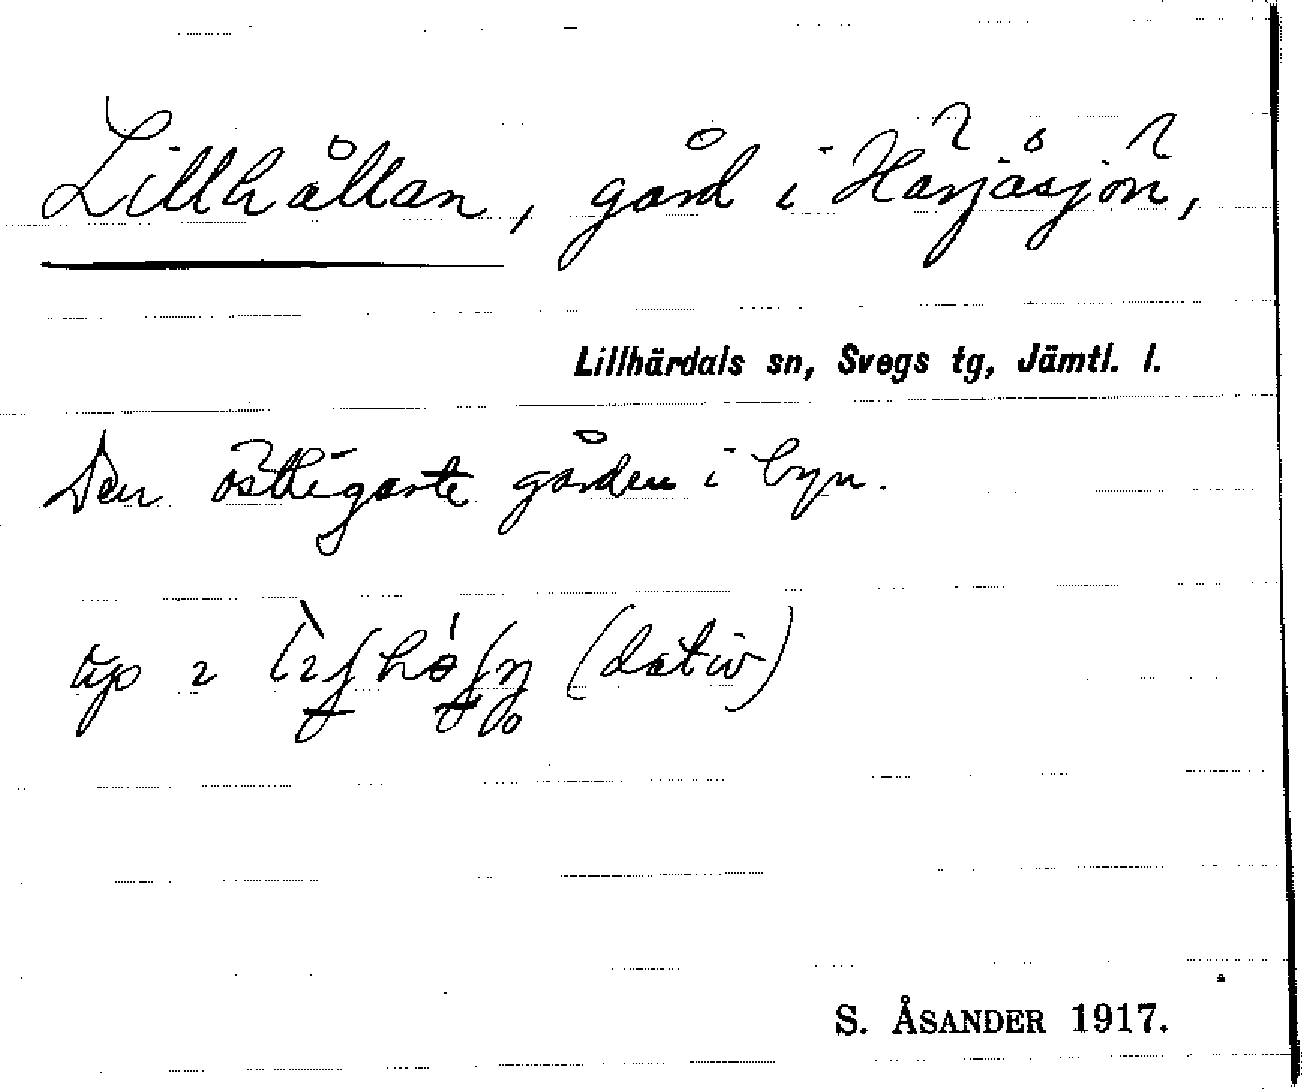 Lillhållan, gård i Härjåsjön,
Lillhärdals sn, Svegs tg, Jämtl. l.
Den östligaste gården i byn.
(dativ)
S. ÅSANDER 1917.